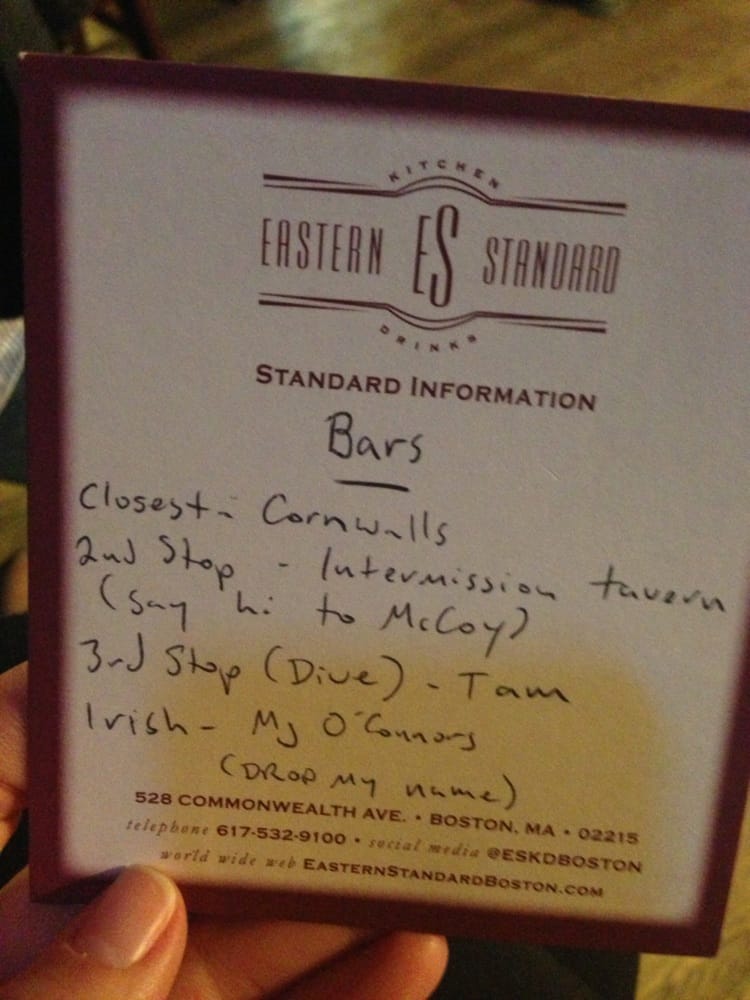 KITCHEN
EASTERN ES STANDARD
DRINKS
STANDARD INFORMATION
Bars
Closest - Cornwalls
2nd Stop - Intermission tavern
(Say hi to McCoy)
3rd Stop (Dive) - Tam
Irish - MJ O'Connors
(DROP MY name)
528 COMMONWEALTH AVE. • BOSTON, MA • 02215
telephone 617-532-9100 • social media @ESKDBOSTON
world wide web EASTERNSTANDARDBOSTON.COM